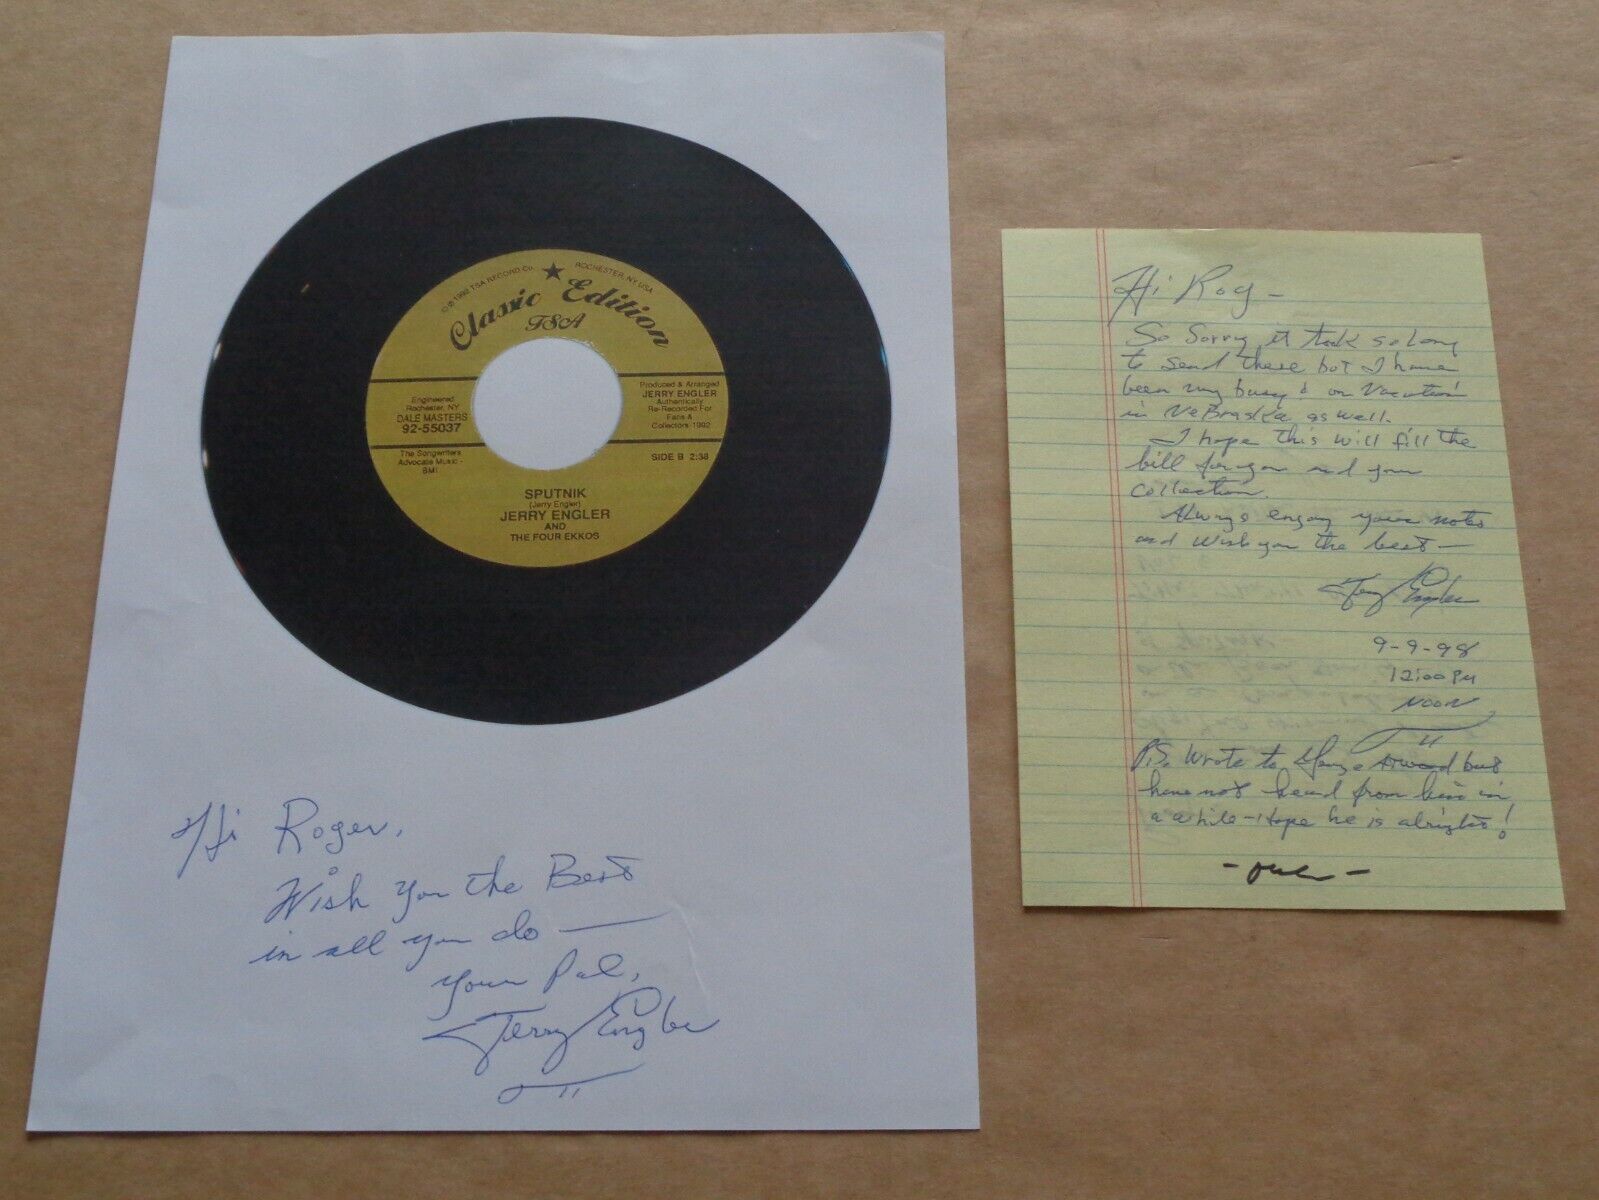 © ℗ 1992 TSA RECORD Co. ★ ROCHESTER, NY, USA
Classic Edition
TSA
Engineered
Rochester, NY
DALE MASTERS
92-55037
The Songwriters
Advocate Music -
BMI
Produced & Arranged
JERRY ENGLER
Authentically
Re-Recorded For
Fans &
Collectors-1992
SIDE B 2:38
SPUTNIK
(Jerry Engler)
JERRY ENGLER
AND
THE FOUR EKKOS
Hi Roger,
Wish you the Best
in all you do —
your Pal,
Jerry Engler
Hi Rog -
So Sorry it took so long
to send these but I have
been very busy & on Vacation
in Nebraska as well.
I hope this will fill the
bill for you and your
collection.
Always enjoy your notes
and wish you the best —
Jerry Engler
9-9-98
12:00 PM
NOON
P.S. Wrote to but
have not heard from him in
a while - Hope he is alright!
- over -